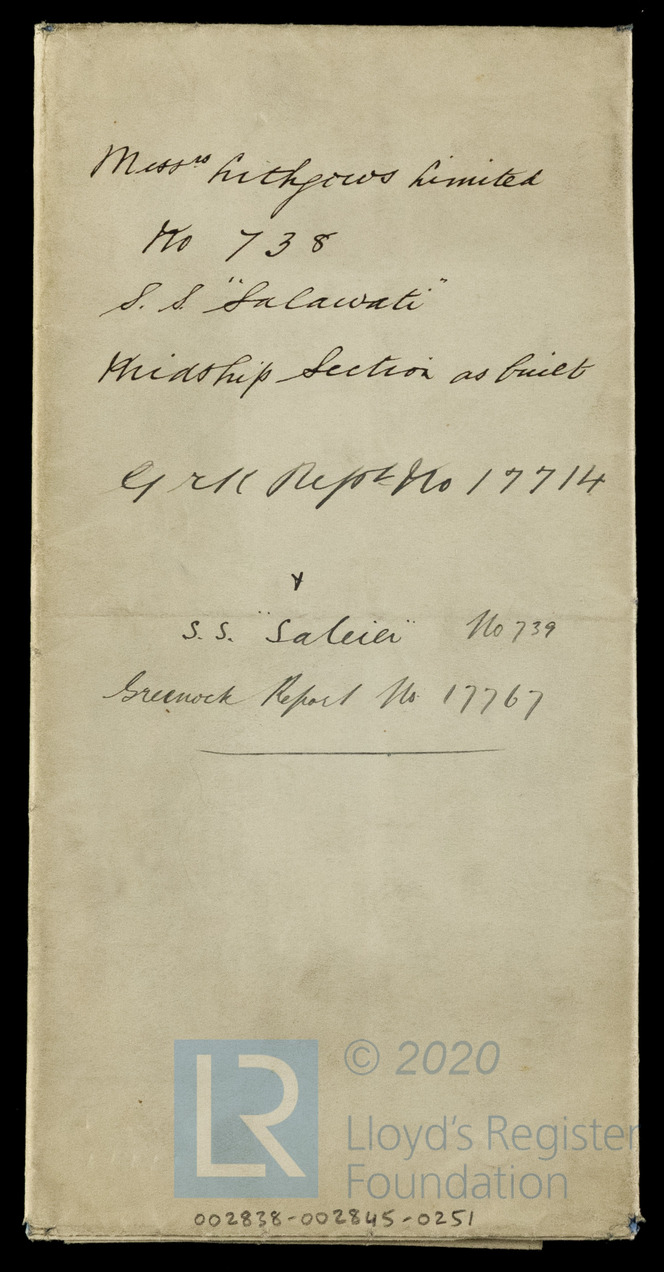 Messrs Lithgows Limited
No 738
S. S. "Salawati"
Midship Section as built
Grk Rept No 17714
&
S.S. "Saleier" No 739
Greenock Report No 17767
LR
© 2020
Lloyd's Register
Foundation
002838-002845-0251